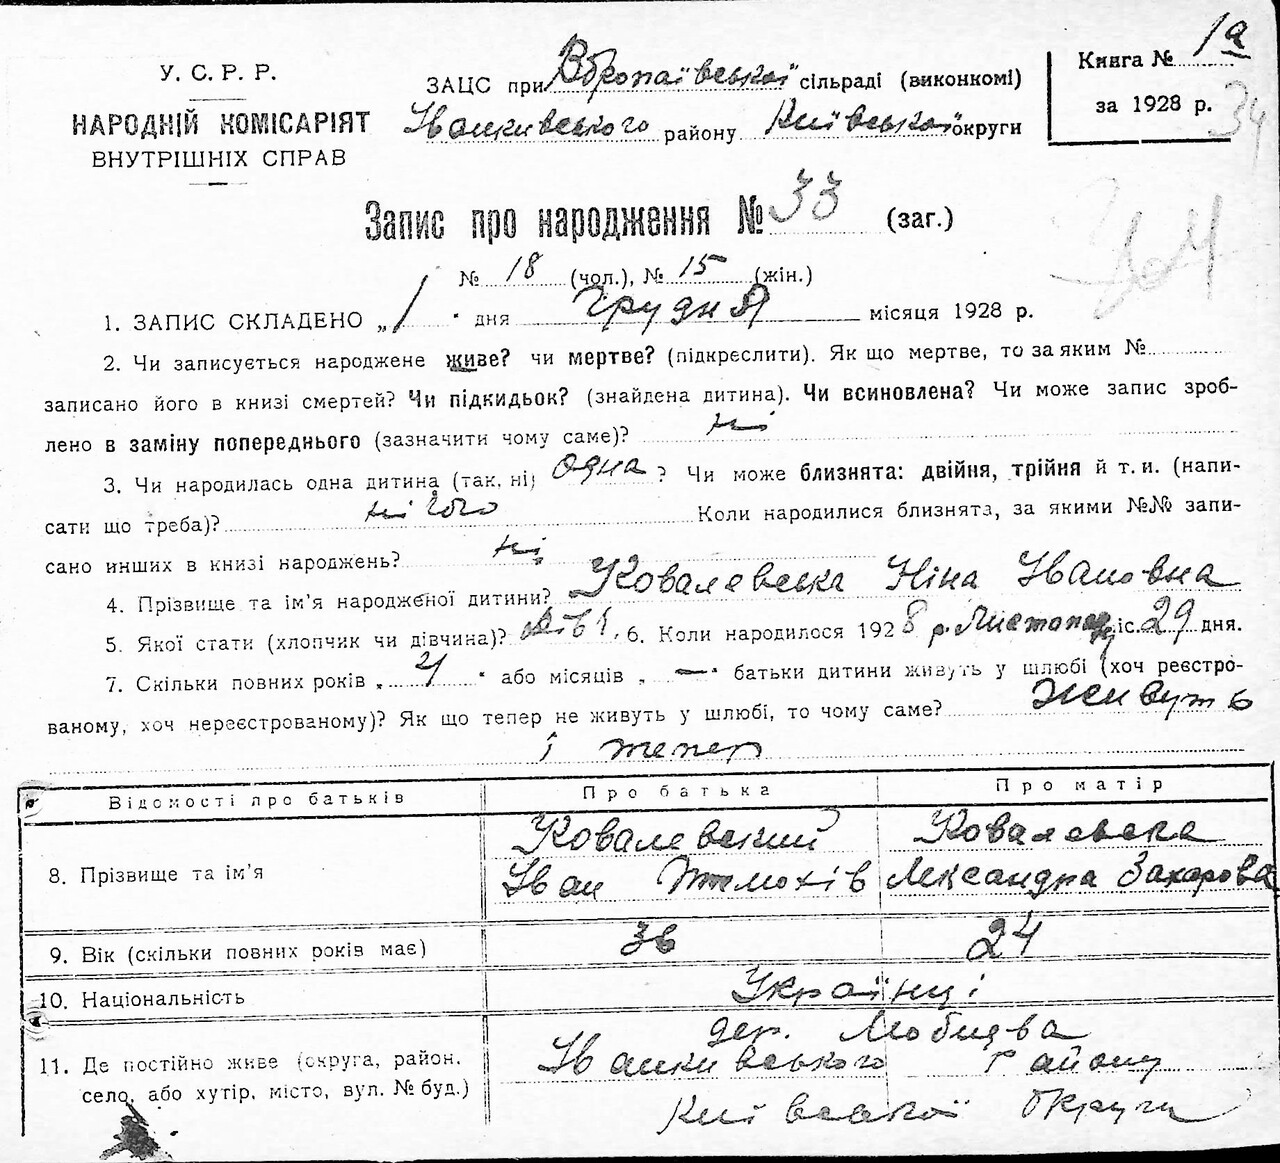 У. С. Р. Р.
НАРОДНІЙ КОМІСАРІЯТ
ВНУТРІШНІХ СПРАВ
ЗАЦС при сільраді (виконкомі)
Іванківського району Київської округи
Книга № 1а
за 1928 р.
34
Запис про народження № 33 (заг.)
№ 18 (чол.), № 15 (жін.)
1. ЗАПИС СКЛАДЕНО „1" дня Грудня місяця 1928 р.
2. Чи записується народжене живе? чи мертве? (підкреслити). Як що мертве, то за яким №
записано його в книзі смертей? Чи підкидьок? (знайдена дитина). Чи всиновлена? Чи може запис зроб-
лено в заміну попереднього (зазначити чому саме)? ні
3. Чи народилась одна дитина (так, ні) одна ? Чи може близнята: двійня, трійня й т. и. (напи-
сати що треба)? нічого Коли народилися близнята, за якими №№ запи-
сано инших в книзі народжень? ні
4. Прізвище та ім'я народженої дитини? Ковалевська Ніна Івановна
5. Якої стати (хлопчик чи дівчина)? дівч. 6. Коли народилося 1928 р. Листопад міс. 29 дня.
7. Скільки повних років „ 4 " або місяців „ — " батьки дитини живуть у шлюбі (хоч реєстро-
ваному, хоч нереєстрованому)? Як що тепер не живуть у шлюбі, то чому саме? живуть
і тепер
Відомості про батьків Про батька Про матір
8. Прізвище та ім'я
Ковалевский Ковалевска
Іван Тимохів Лександра Захарова
9. Вік (скільки повних років має) 36 24
10. Національність Українці
11. Де постійно живе (округа, район,
село, або хутір, місто, вул. № буд.)
дер.
Іванкивського району
Київської округи